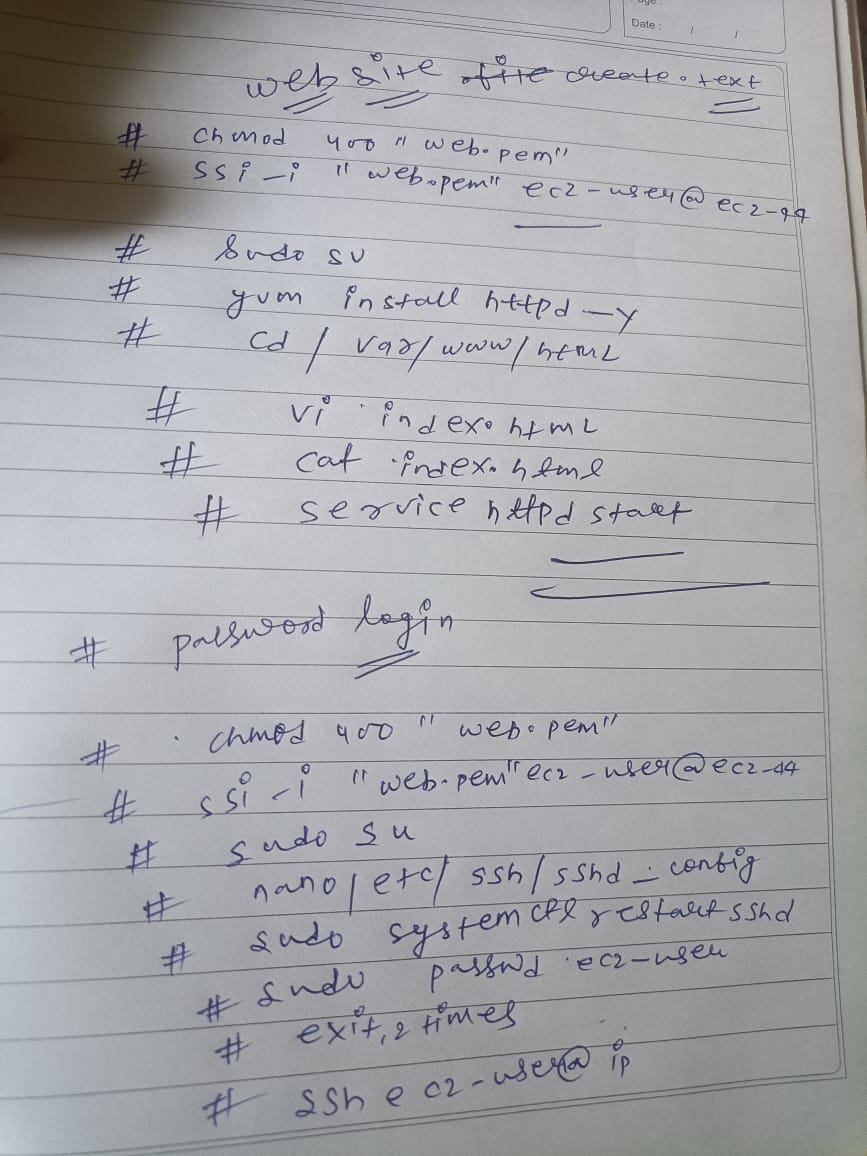 Date : / /
web site create . text
# chmod 400 " web.pem"
# ssi -i " web.pem" ec2-user@ec2-44
# Sudo su
# yum install httpd -y
# cd / var/www/html
# vi index.html
# cat index.html
# service httpd start
# password login
# chmod 400 " web.pem"
# ssi -i " web.pem" ec2-user@ec2-44
# sudo su
# nano /etc/ ssh/sshd_config
# sudo systemctl restart sshd
# sudo passwd ec2-user
# exit, 2 times
# ssh ec2-user@ip